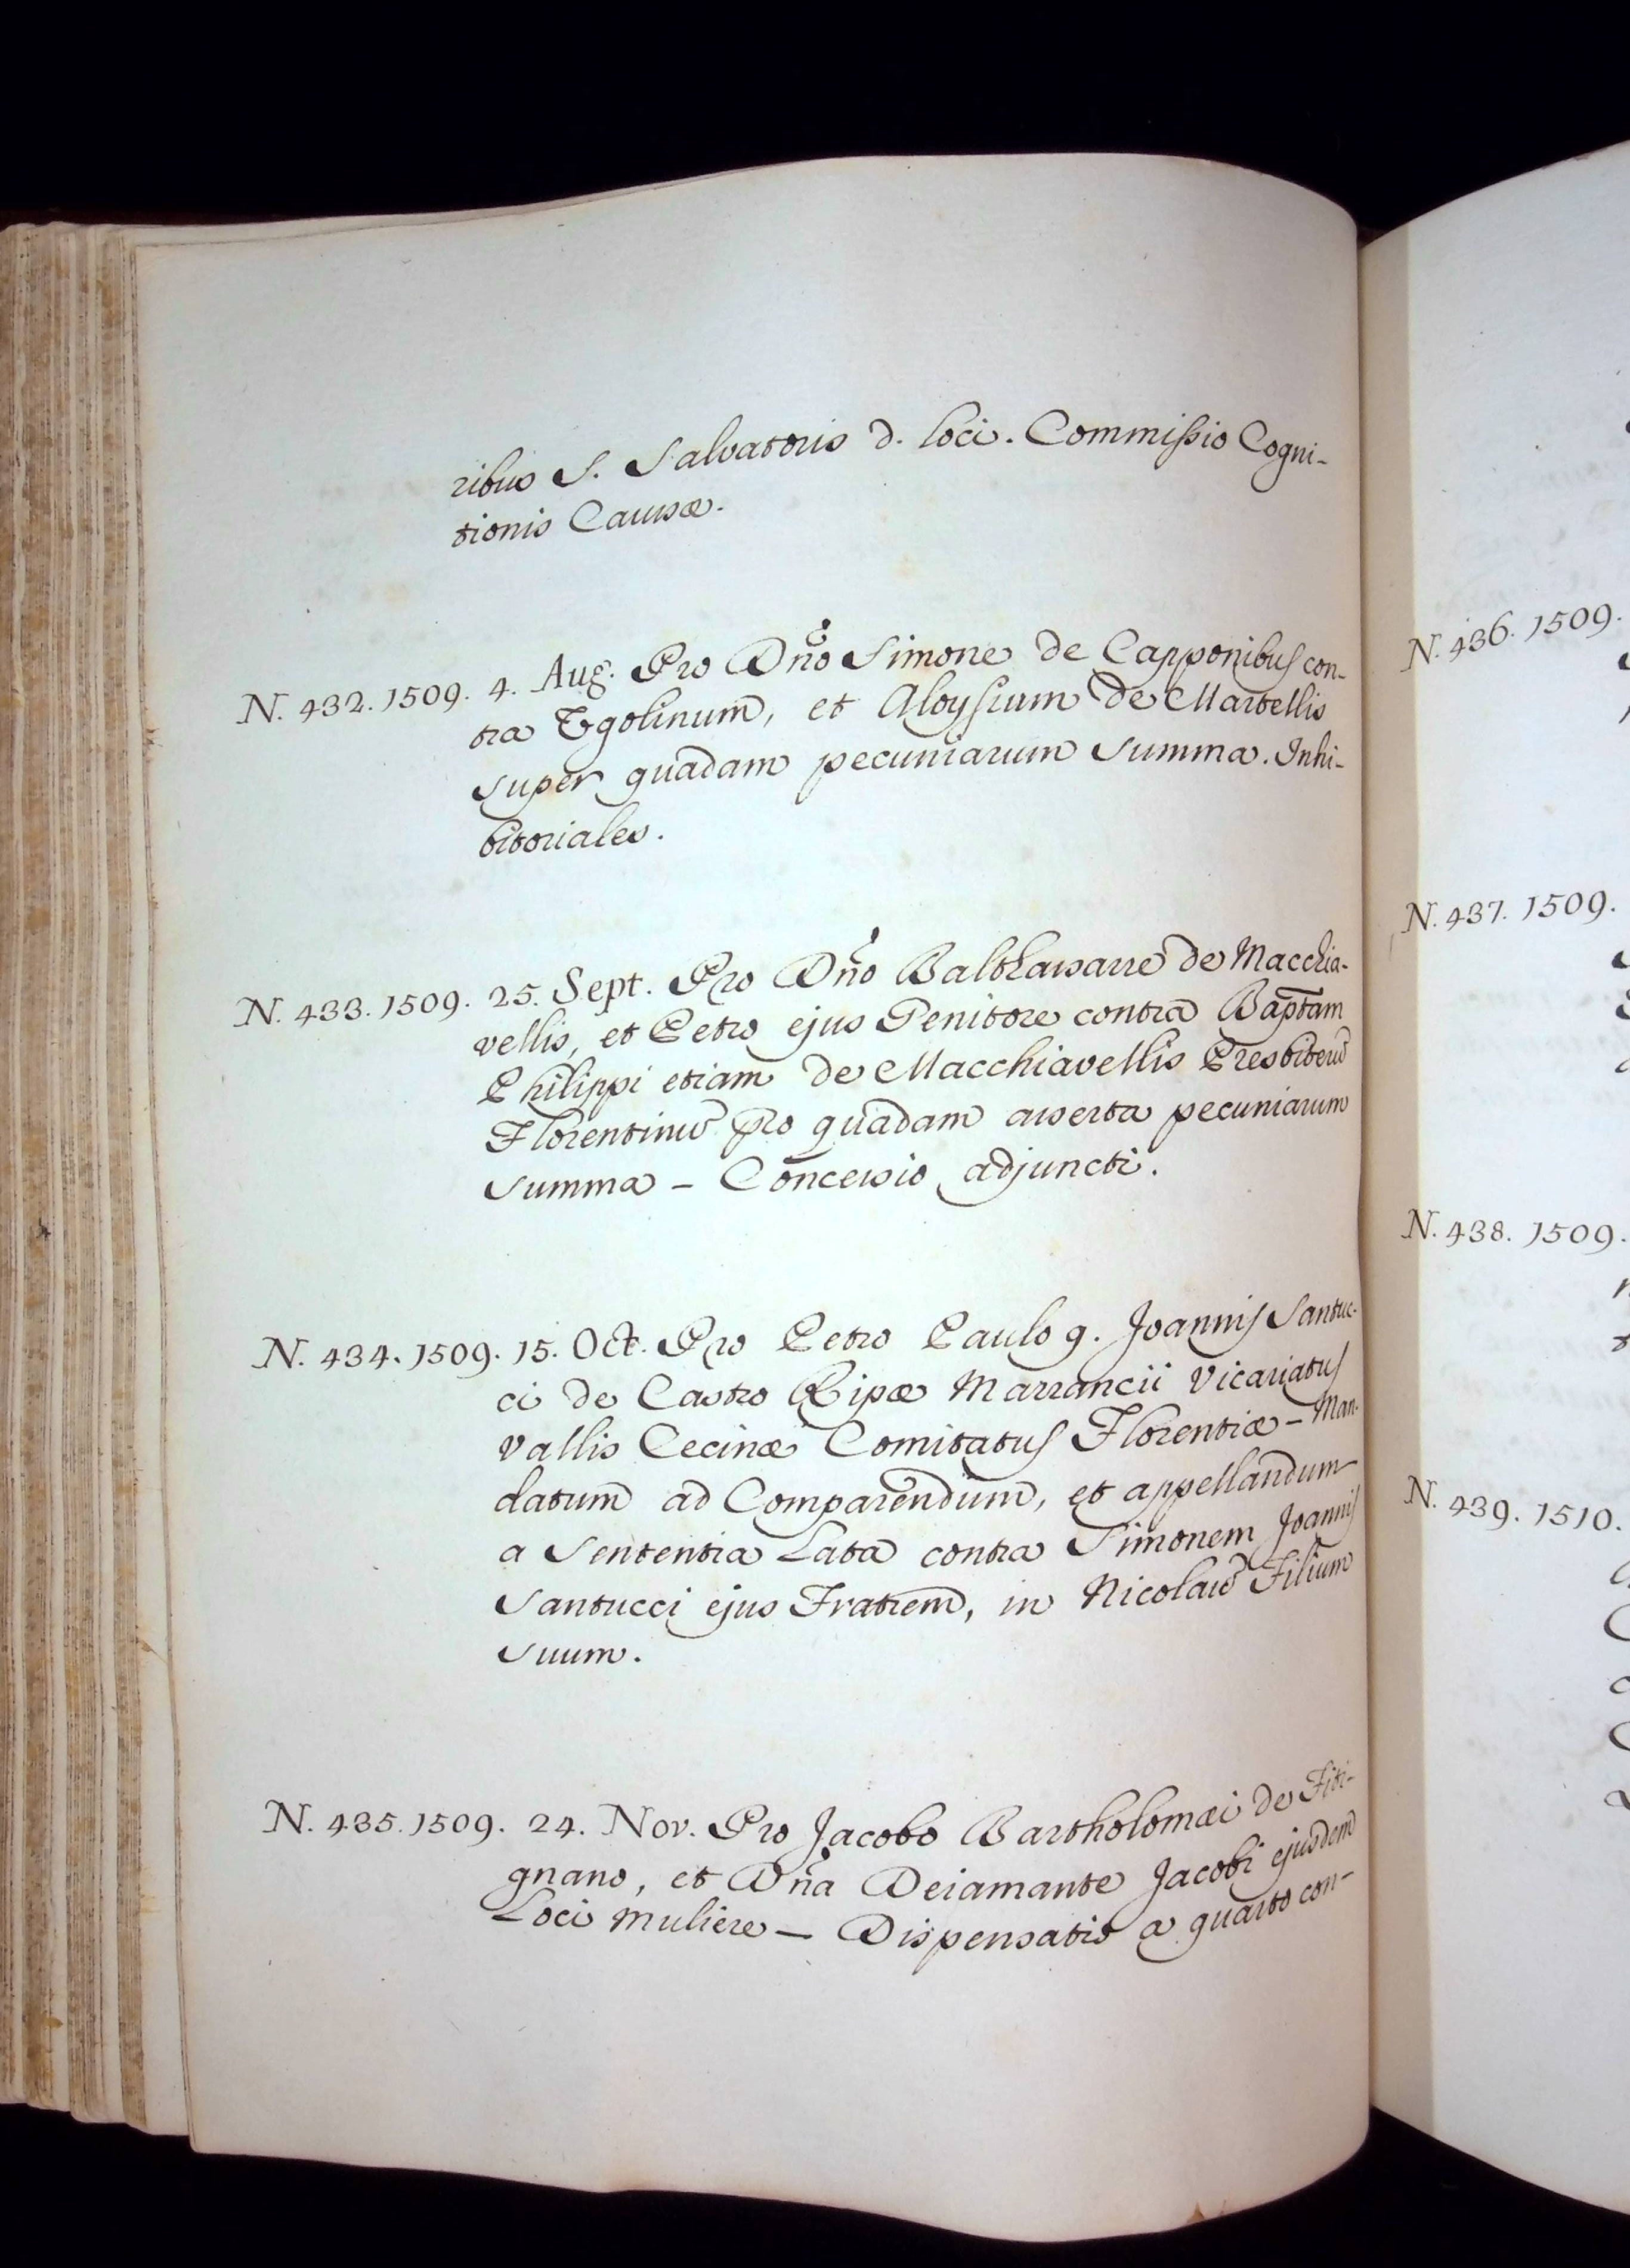 ribus S. Salvatoris d. loci. Commissio Cogni-
tionis Causæ.
N. 432. 1509. 4. Aug. Pro Dño Simone de Capponibus con-
tra Ugolinum, et Aloysium de Martellis
super quadam pecuniarum summa. Inhi-
bitoriales.
N. 433. 1509. 25. Sept. Pro Dño Balthassarre de Macchia-
vellis, et Petro ejus Genitore contra Baptam
Philippi etiam de Macchiavellis Presbiterũ
Florentinũ pro quadam asserta pecuniarum
summa - Concessio adjuncti.
N. 434. 1509. 15. Oct. Pro Petro Paulo q. Joannis Santuc-
ci de Castro Ripæ Marrancii Vicariatus
Vallis Cecinæ Comitatus Florentiæ - Man-
datum ad Comparendum, et appellandum
a Sententia Lata contra Simonem Joannis
Santucci ejus Fratrem, in Nicolaũ Filium
suum.
N. 435. 1509. 24. Nov. Pro Jacobo Bartholomæi de Fiti-
gnano, et Dña Deiamante Jacobi ejusdem
Loci muliere - Dispensatio a quarto con-
N. 436. 1509.
N. 437. 1509.
N. 438. 1509.
N. 439. 1510.